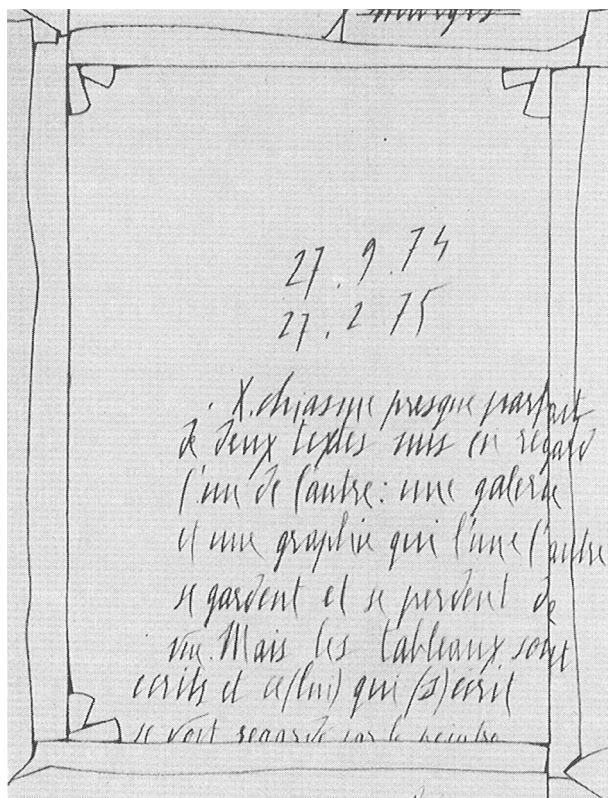 27.9.74
27.2 75
. X. chiasme presque parfait
de deux textes mis en regard
l'un de l'autre : une galerie
et une graphie qui l'une l'autre
se gardent et se perdent de
vue. Mais les tableaux sont
écrits et ce(lui) qui (s)écrit
se voit regardé par le peintre